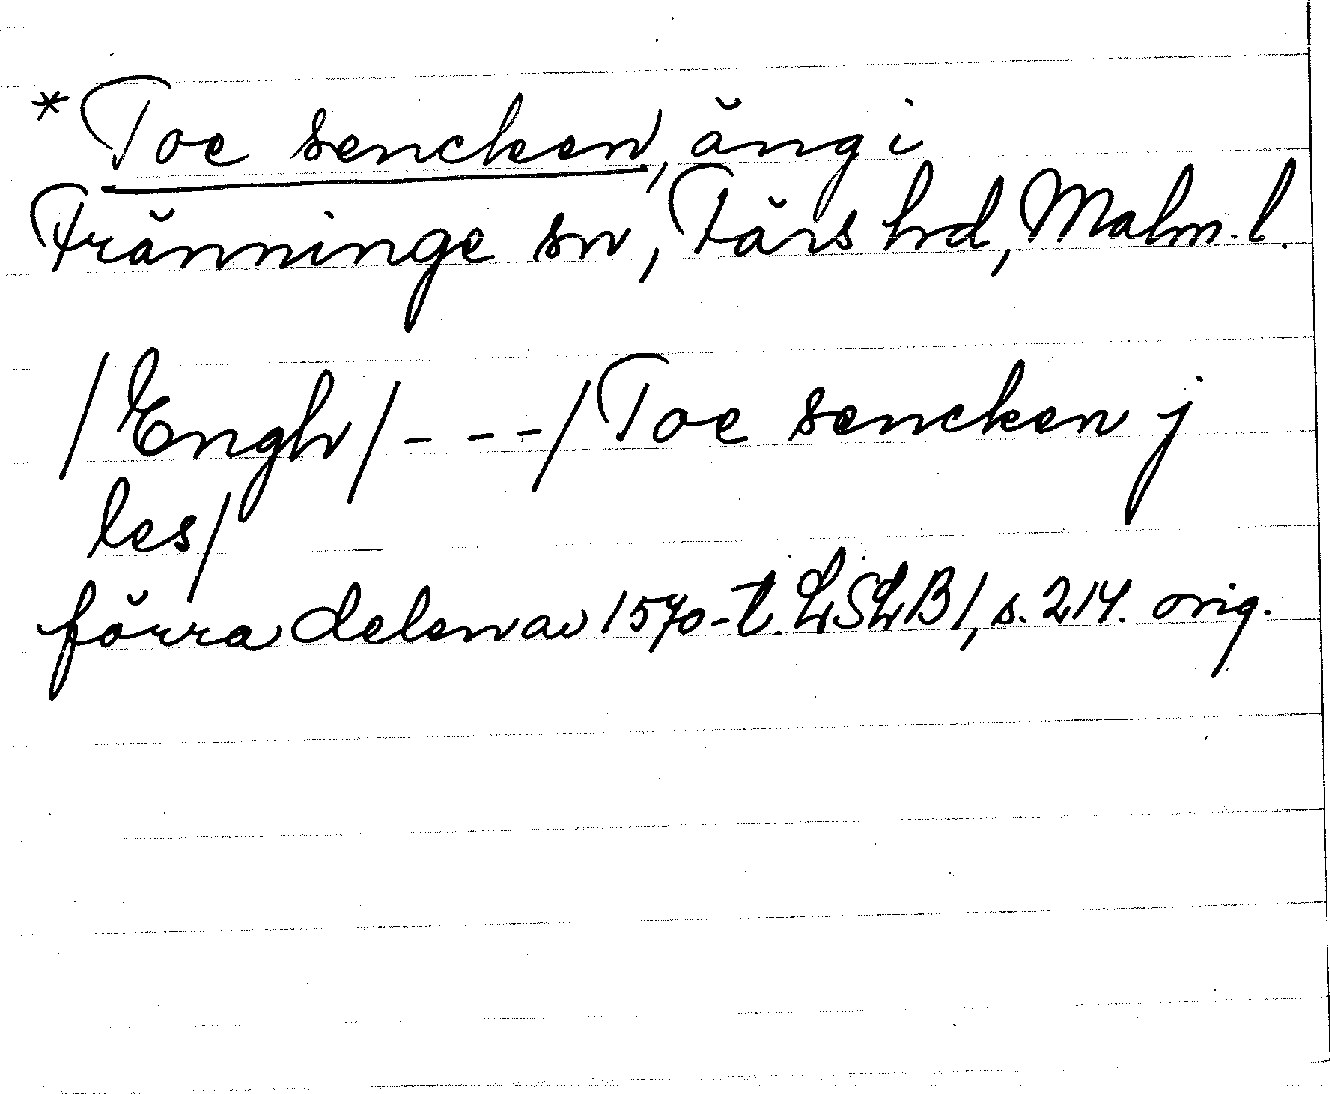 * Toe sencken, äng i
Fränninge sn, Färs hd, Malm. l.
/Engh/ - - - /Toe sencken j
les/
förra delen av 1570-t. LSLB1, s. 214. orig.